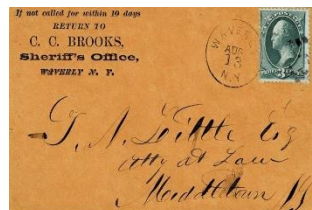 If not called for within 10 days
RETURN TO
C. C. BROOKS,
Sheriff's Office,
WAVERLY N. Y.
WAVERLY
AUG
13
N.Y.
3
T. N. Little Esq
Atty at Law
Middletown